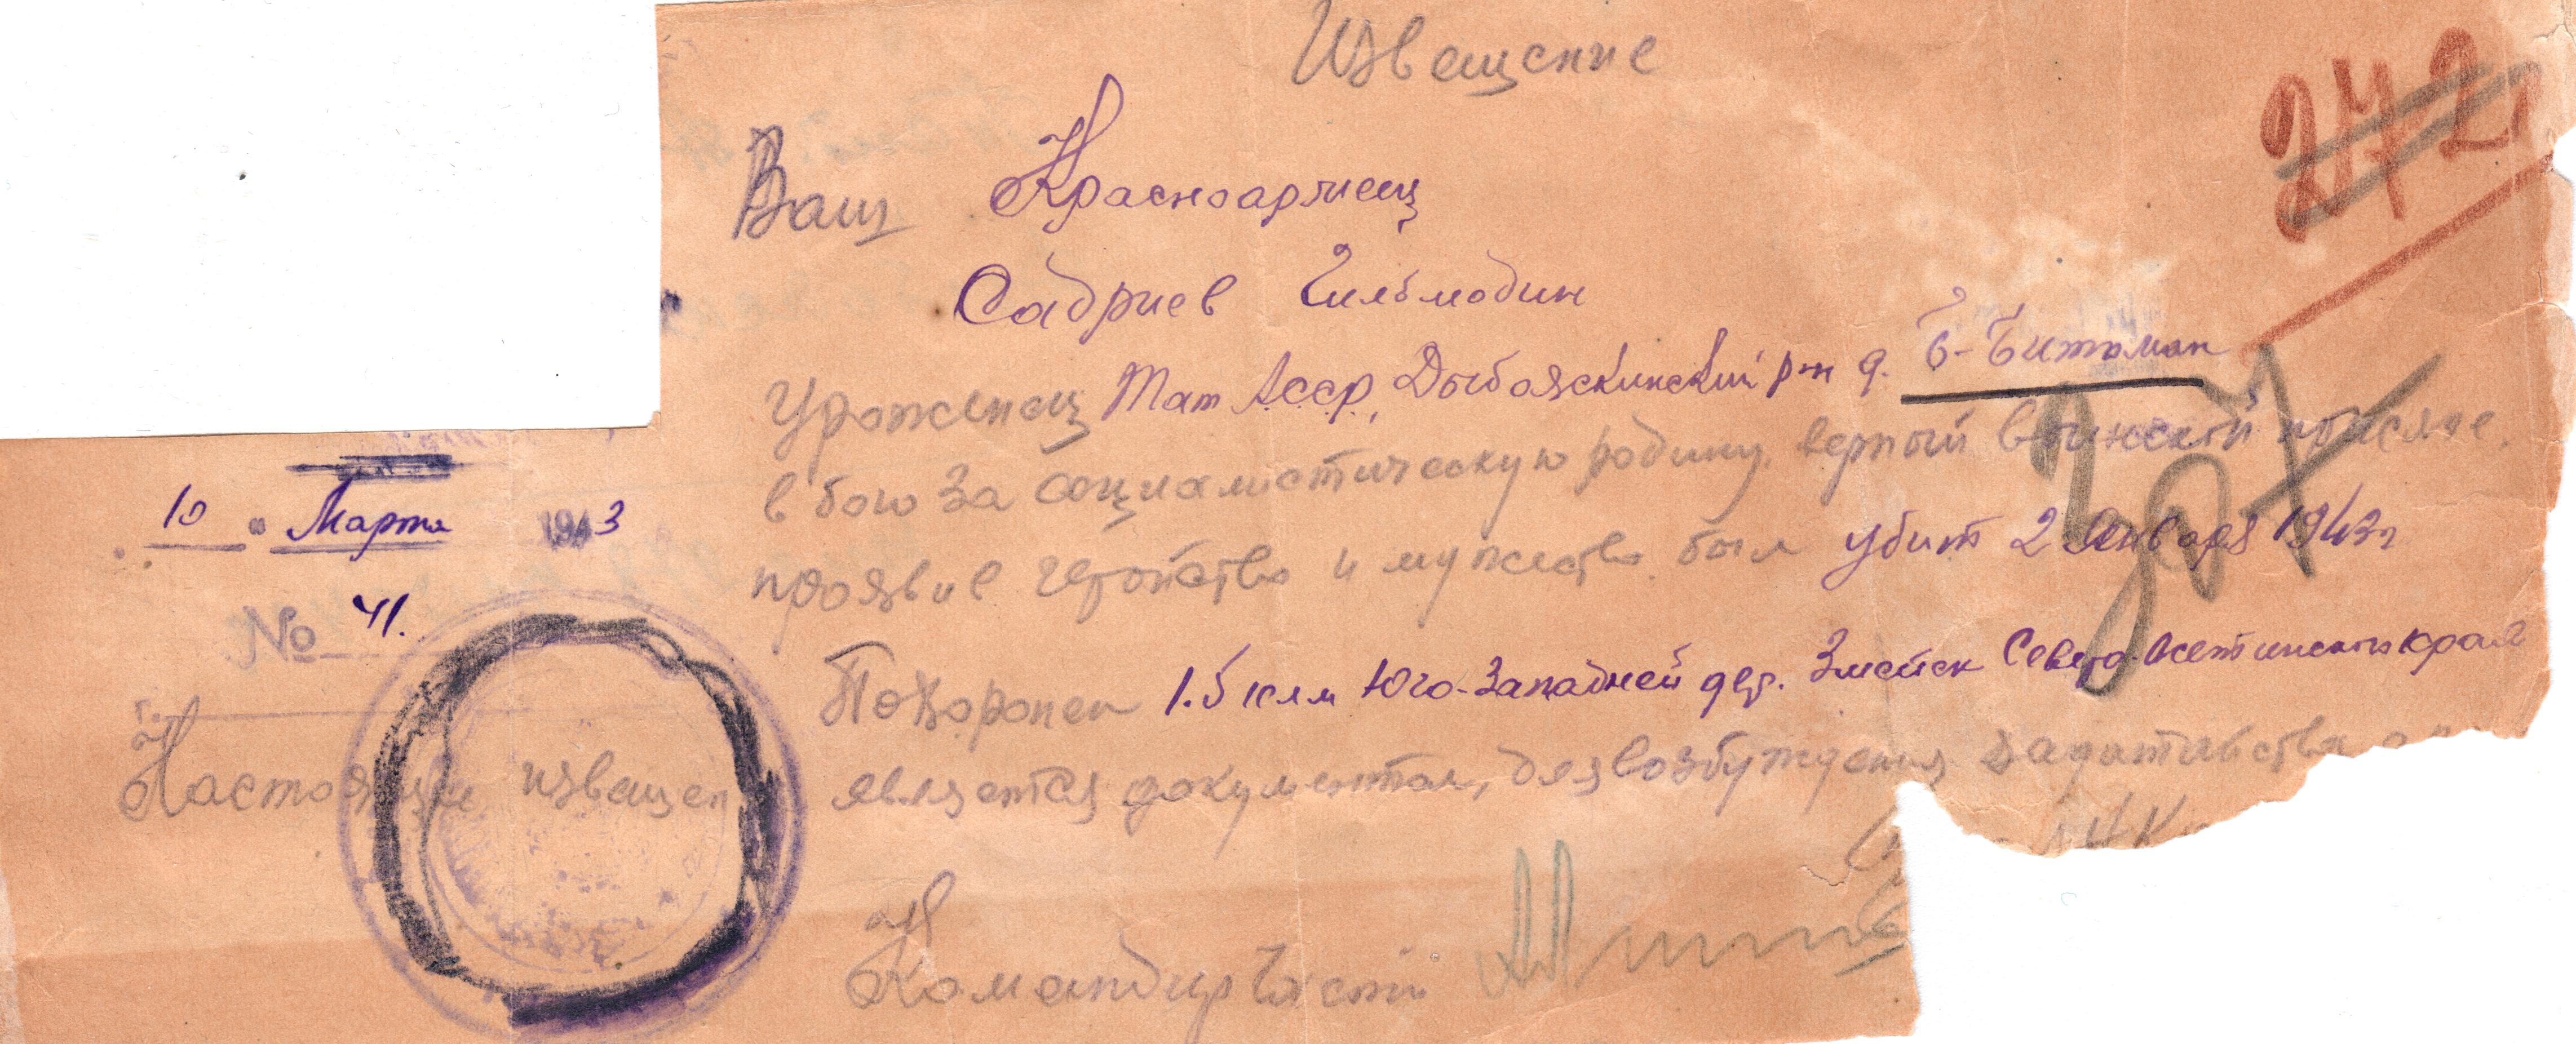 Извещение
272
Ваш Красноармеец
Садриев Гильмодин
Уроженец Тат Асср, Дыбояскинский р-н д. Б-Битаман
в бою за социалистическую родину, верный воинской присяге,
10 " Марта 1943
проявив геройство и мужество был убит 2 Января 1943г
№ 41.
Похоронен 1.5 клм Юго-Западней дер. Змейск Северо-Осетинского края
Настоящее извещен
является документом, для возбуждения хадатайства о
НК
Командир Части